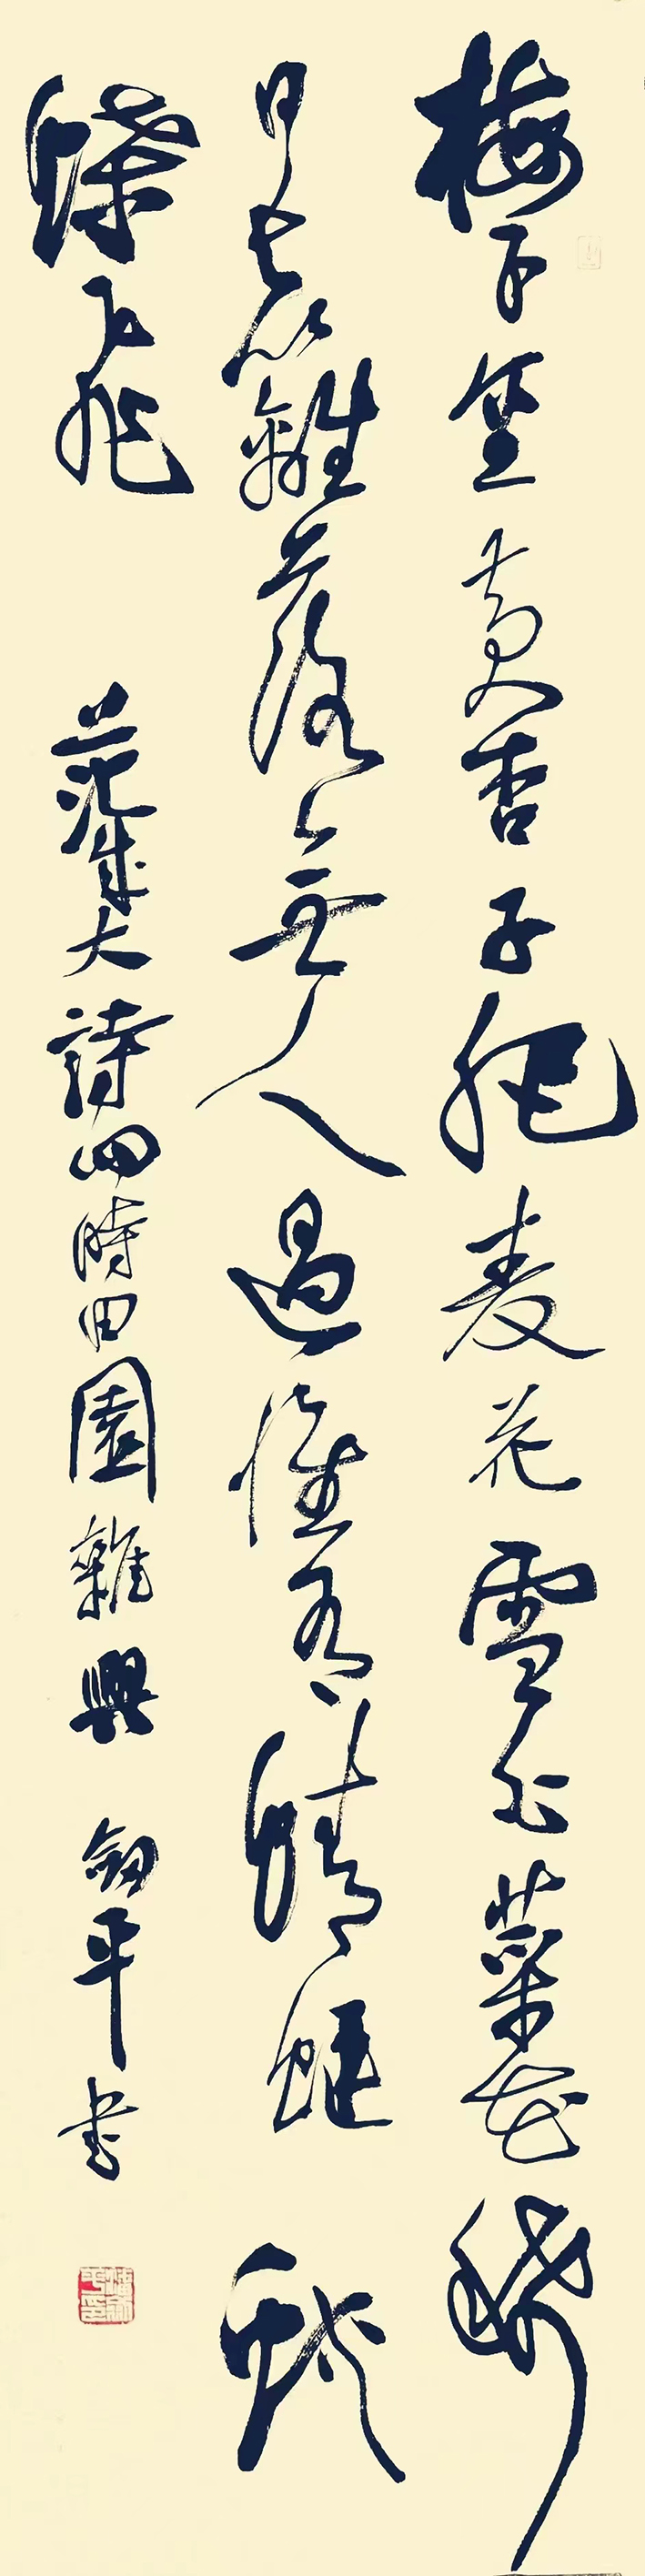 梅子金黄杏子肥麦花雪白菜花稀
日長籬落無人過惟有蜻蜓蛺
蝶飛 范成大詩四時田園雜興 劍平書